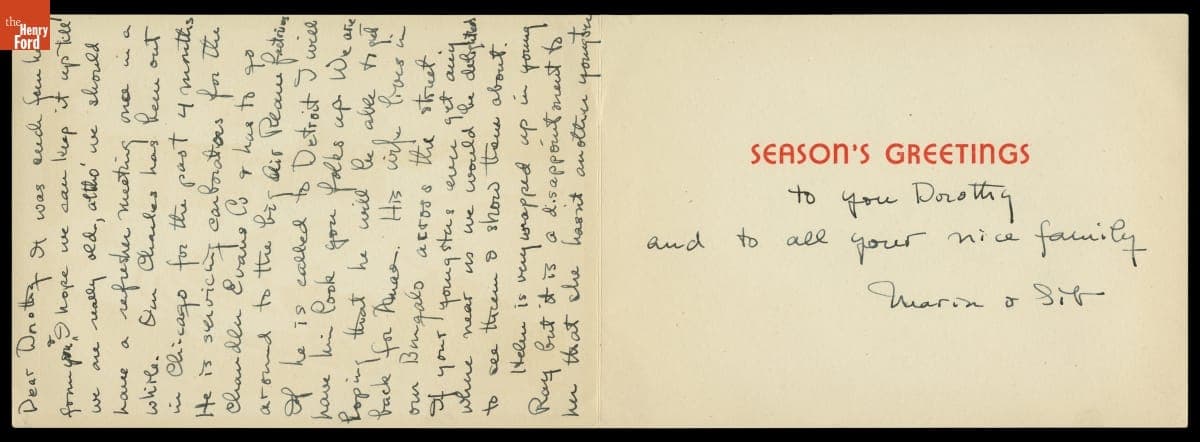 the
Henry
Ford
Dear Dorothy It was such fun
from you, I hope we can keep it up till
we are really old, altho' we should
have a refresher meeting once in a
while. Our Charles has been out
in Chicago for the past 4 months
He is servicing carborators for the
Chandler Evans Co & has to go
around to the big Air Plane factories
If he is called to Detroit I will
have him look you folks up. We are
hoping that he will be able to get
back for Xmas. His wife lives in
our Bungalo across the street
If your youngsters ever get any
where near us we would be delighted
to see them & show them about.
Helen is very wrapped up in young
Ray but it is a disappointment to
her that she hasn't another youngster
SEASON'S GREETINGS
to you Dorothy
and to all your nice family
Marion & Sib